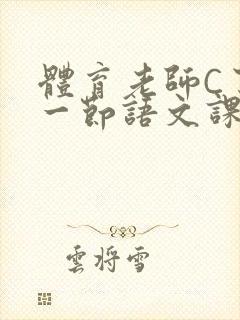 體育老師C
一節語文課
雲將雪